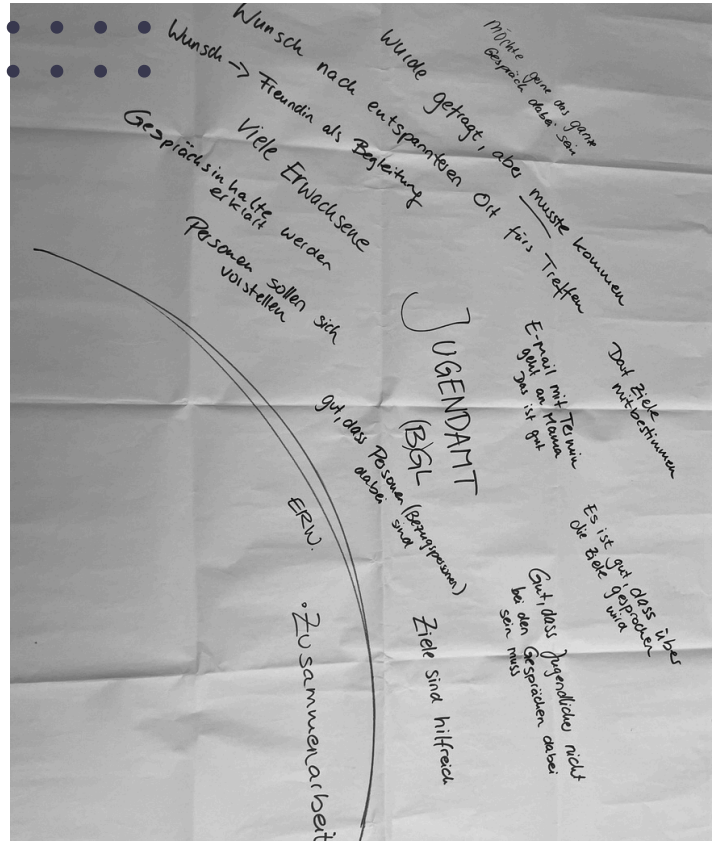 Möchte gerne das ganze
Gespräch dabei sein
Wurde gefragt, aber musste kommen
Wunsch nach entspannteren Ort fürs Treffen
Wunsch -> Freundin als Begleitung
Viele Erwachsene
Gesprächsinhalte werden
erklärt
Personen sollen sich
vorstellen
JUGENDAMT
(B)GL
E-Mail mit Termin
geht an Mama
Das ist gut
Darf Ziele
mitbestimmen
gut, dass Personen (Bezugspersonen)
dabei sind
Es ist gut, dass über
die Ziele gesprochen
wird
Gut, dass Jugendliche nicht
bei den Gesprächen dabei
sein muss
Ziele sind hilfreich
ERW.
·Zusammenarbeit